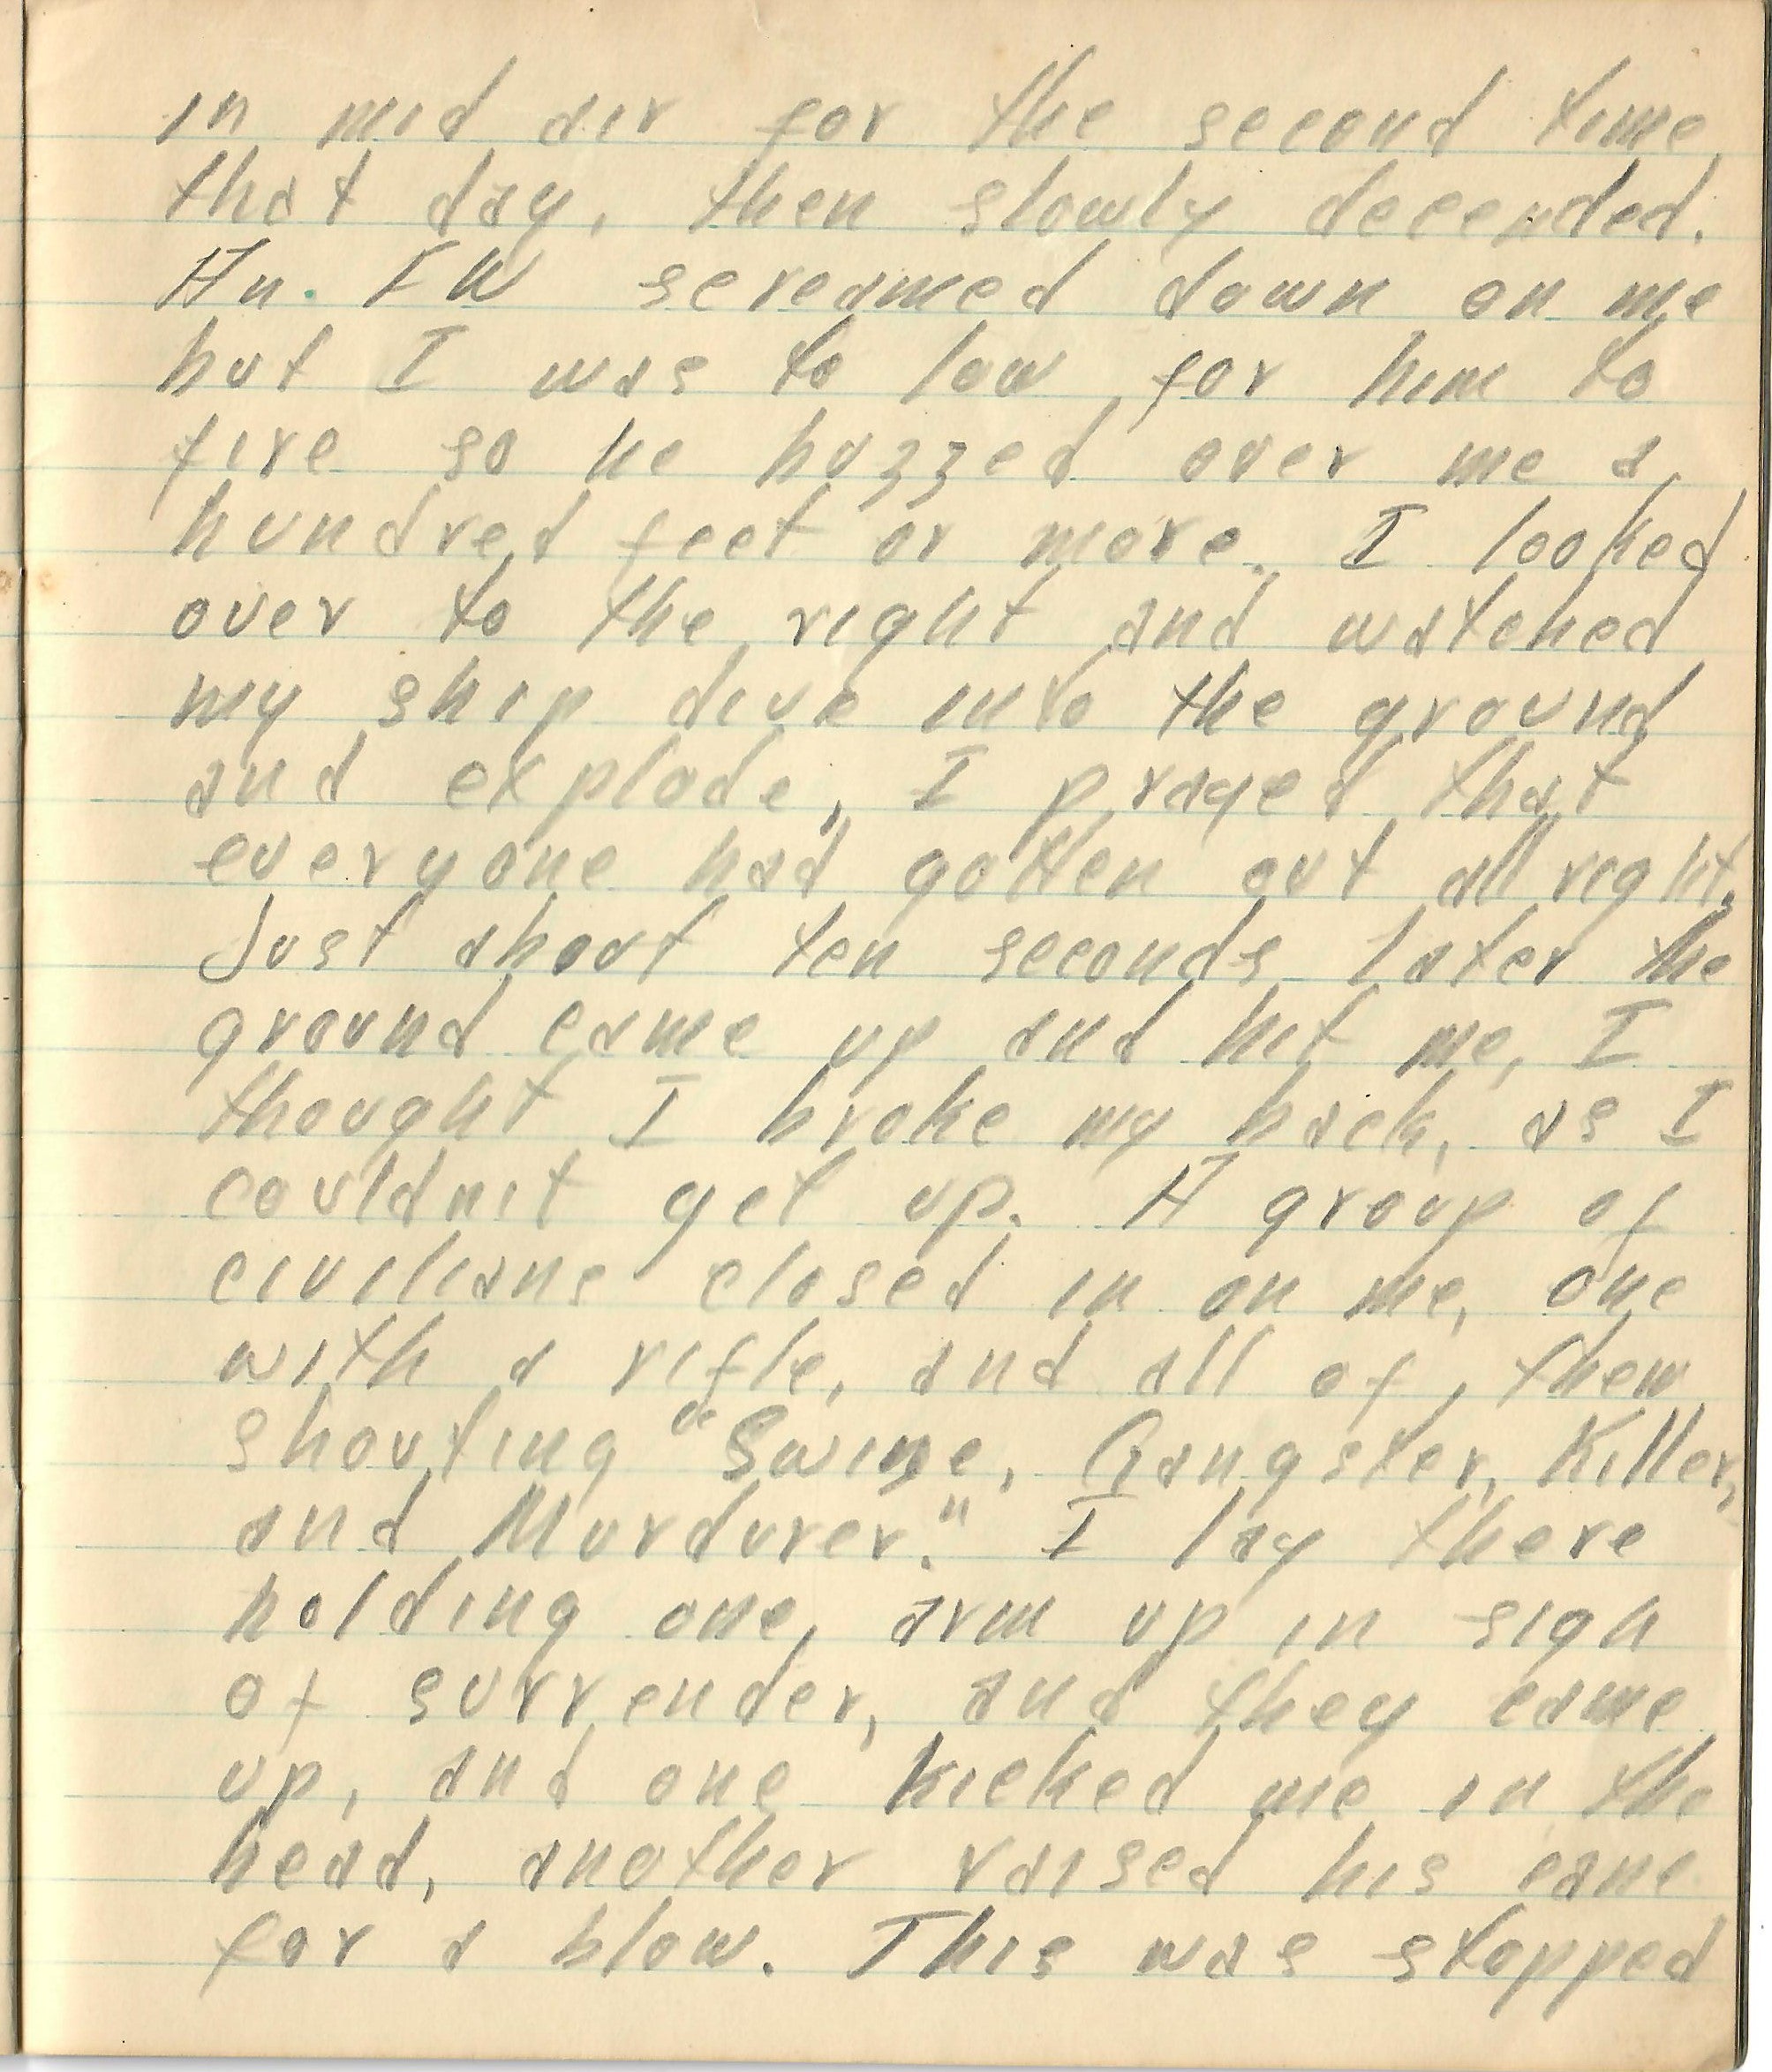 in mid air for the second time
that day, then slowly decended.
An. FW screamed down on me
but I was to low for him to
fire so he buzzed over me a
hundred feet or more. I looked
over to the right and watched
my ship dive into the ground
and explode, I prayed that
everyone had gotten out all right.
Just about ten seconds later the
ground came up and hit me, I
thought I broke my back, as I
couldnit get up. A group of
civilians closed in on me, one
with a rifle, and all of them
shouting "Swine, Gangster, Killer,
and Murdurer." I lay there
holding one arm up in sign
of surrender, and they came
up, and one kicked me in the
head, another raised his cane
for a blow. This was stopped